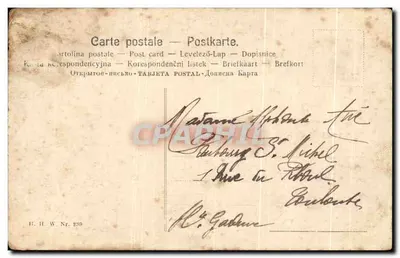 Carte postale – Postkarte.
Cartolina postale – Post card – Levelező-Lap – Dopisnice
Karta korespondencyjna – Korespondenční listek – Briefkaart – Brefkort
Открытое-письмо-TARJETA POSTAL-Дописна Карта
Madame Alphonse
Faubourg St Michel
1 Rue du
Toulouse
Hte Garonne